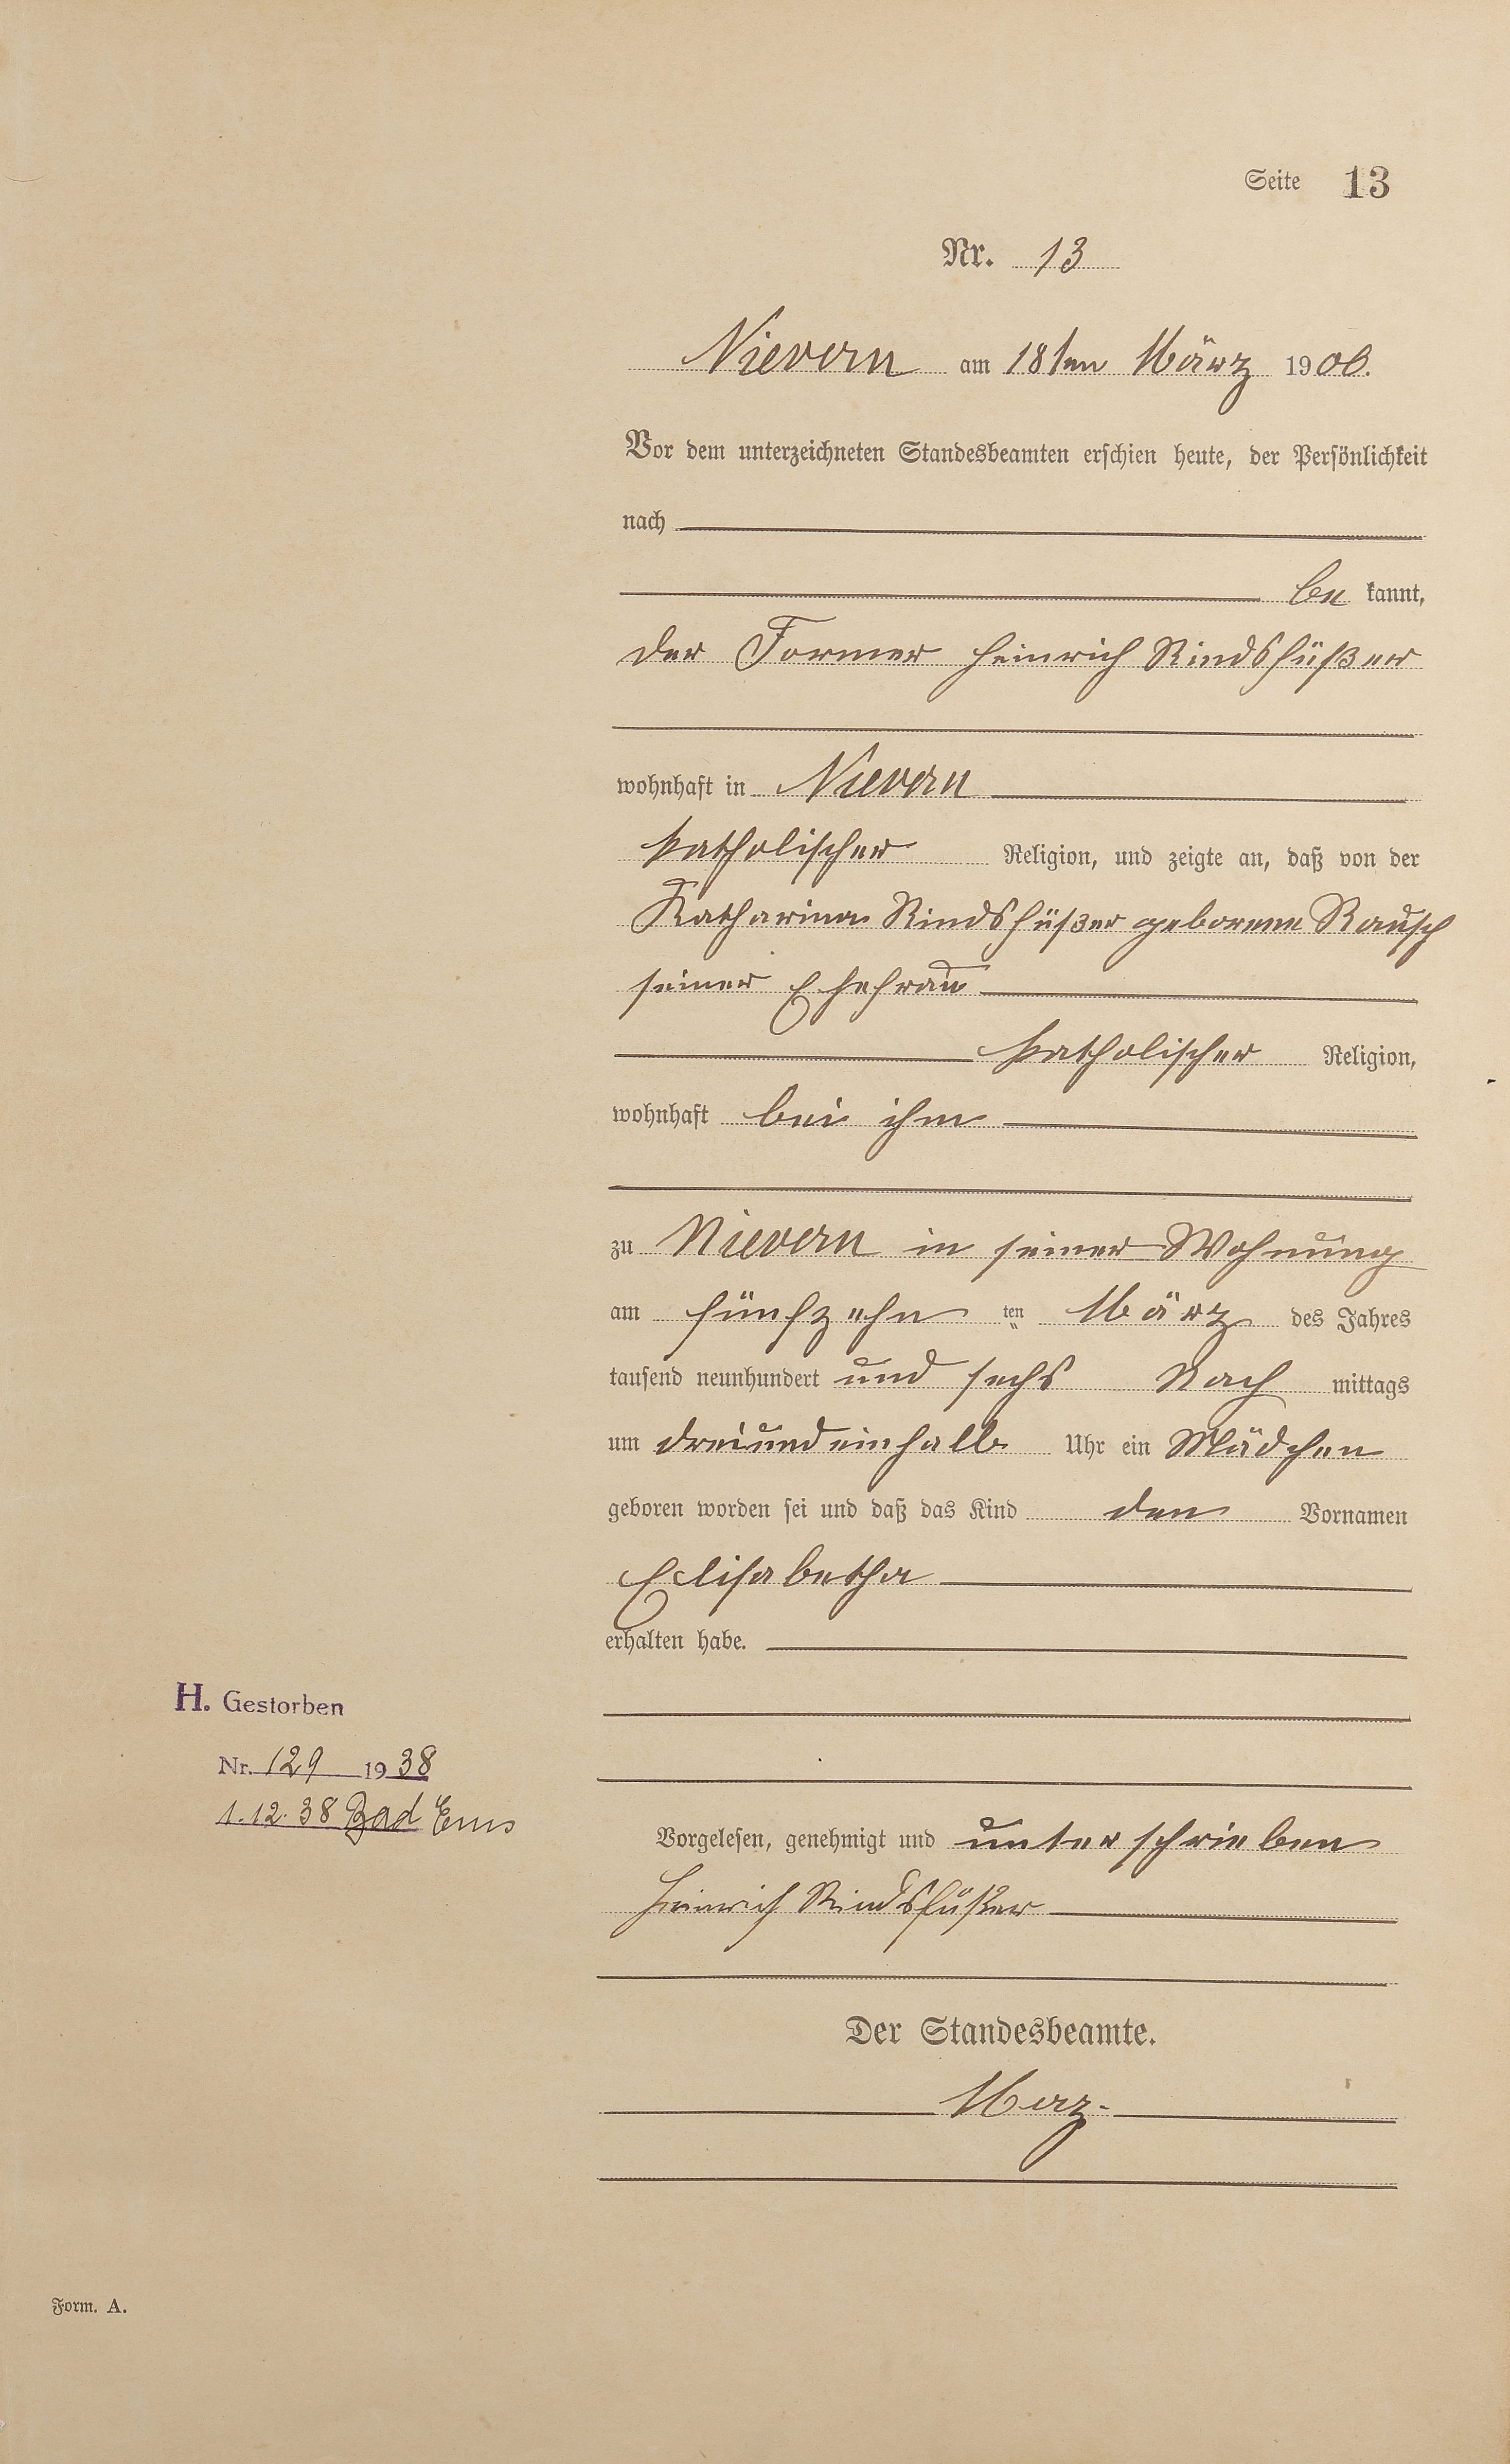 Seite 13
Nr. 13
Nievern am 18ten März 1906.
Vor dem unterzeichneten Standesbeamten erschien heute, der Persönlichkeit
nach
be kannt,
der Former Heinrich Rindsfüßer
wohnhaft in Nievern
katholischer Religion, und zeigte an, daß von der
Katharina Rindsfüßer geborene Rausch
seiner Ehefrau
katholischer Religion,
wohnhaft bei ihm
zu Nievern in seiner Wohnung
am fünfzehn ten März des Jahres
tausend neunhundert und sechs Nach mittags
um dreiundeinhalb Uhr ein Mädchen
geboren worden sei und daß das Kind den Vornamen
Elisabetha
erhalten habe.
H. Gestorben
Nr. 129 1938
1.12.38 Bad Ems
Vorgelesen, genehmigt und unterschrieben
Heinrich Rindsfüßer
Der Standesbeamte.
Merz.
Form. A.